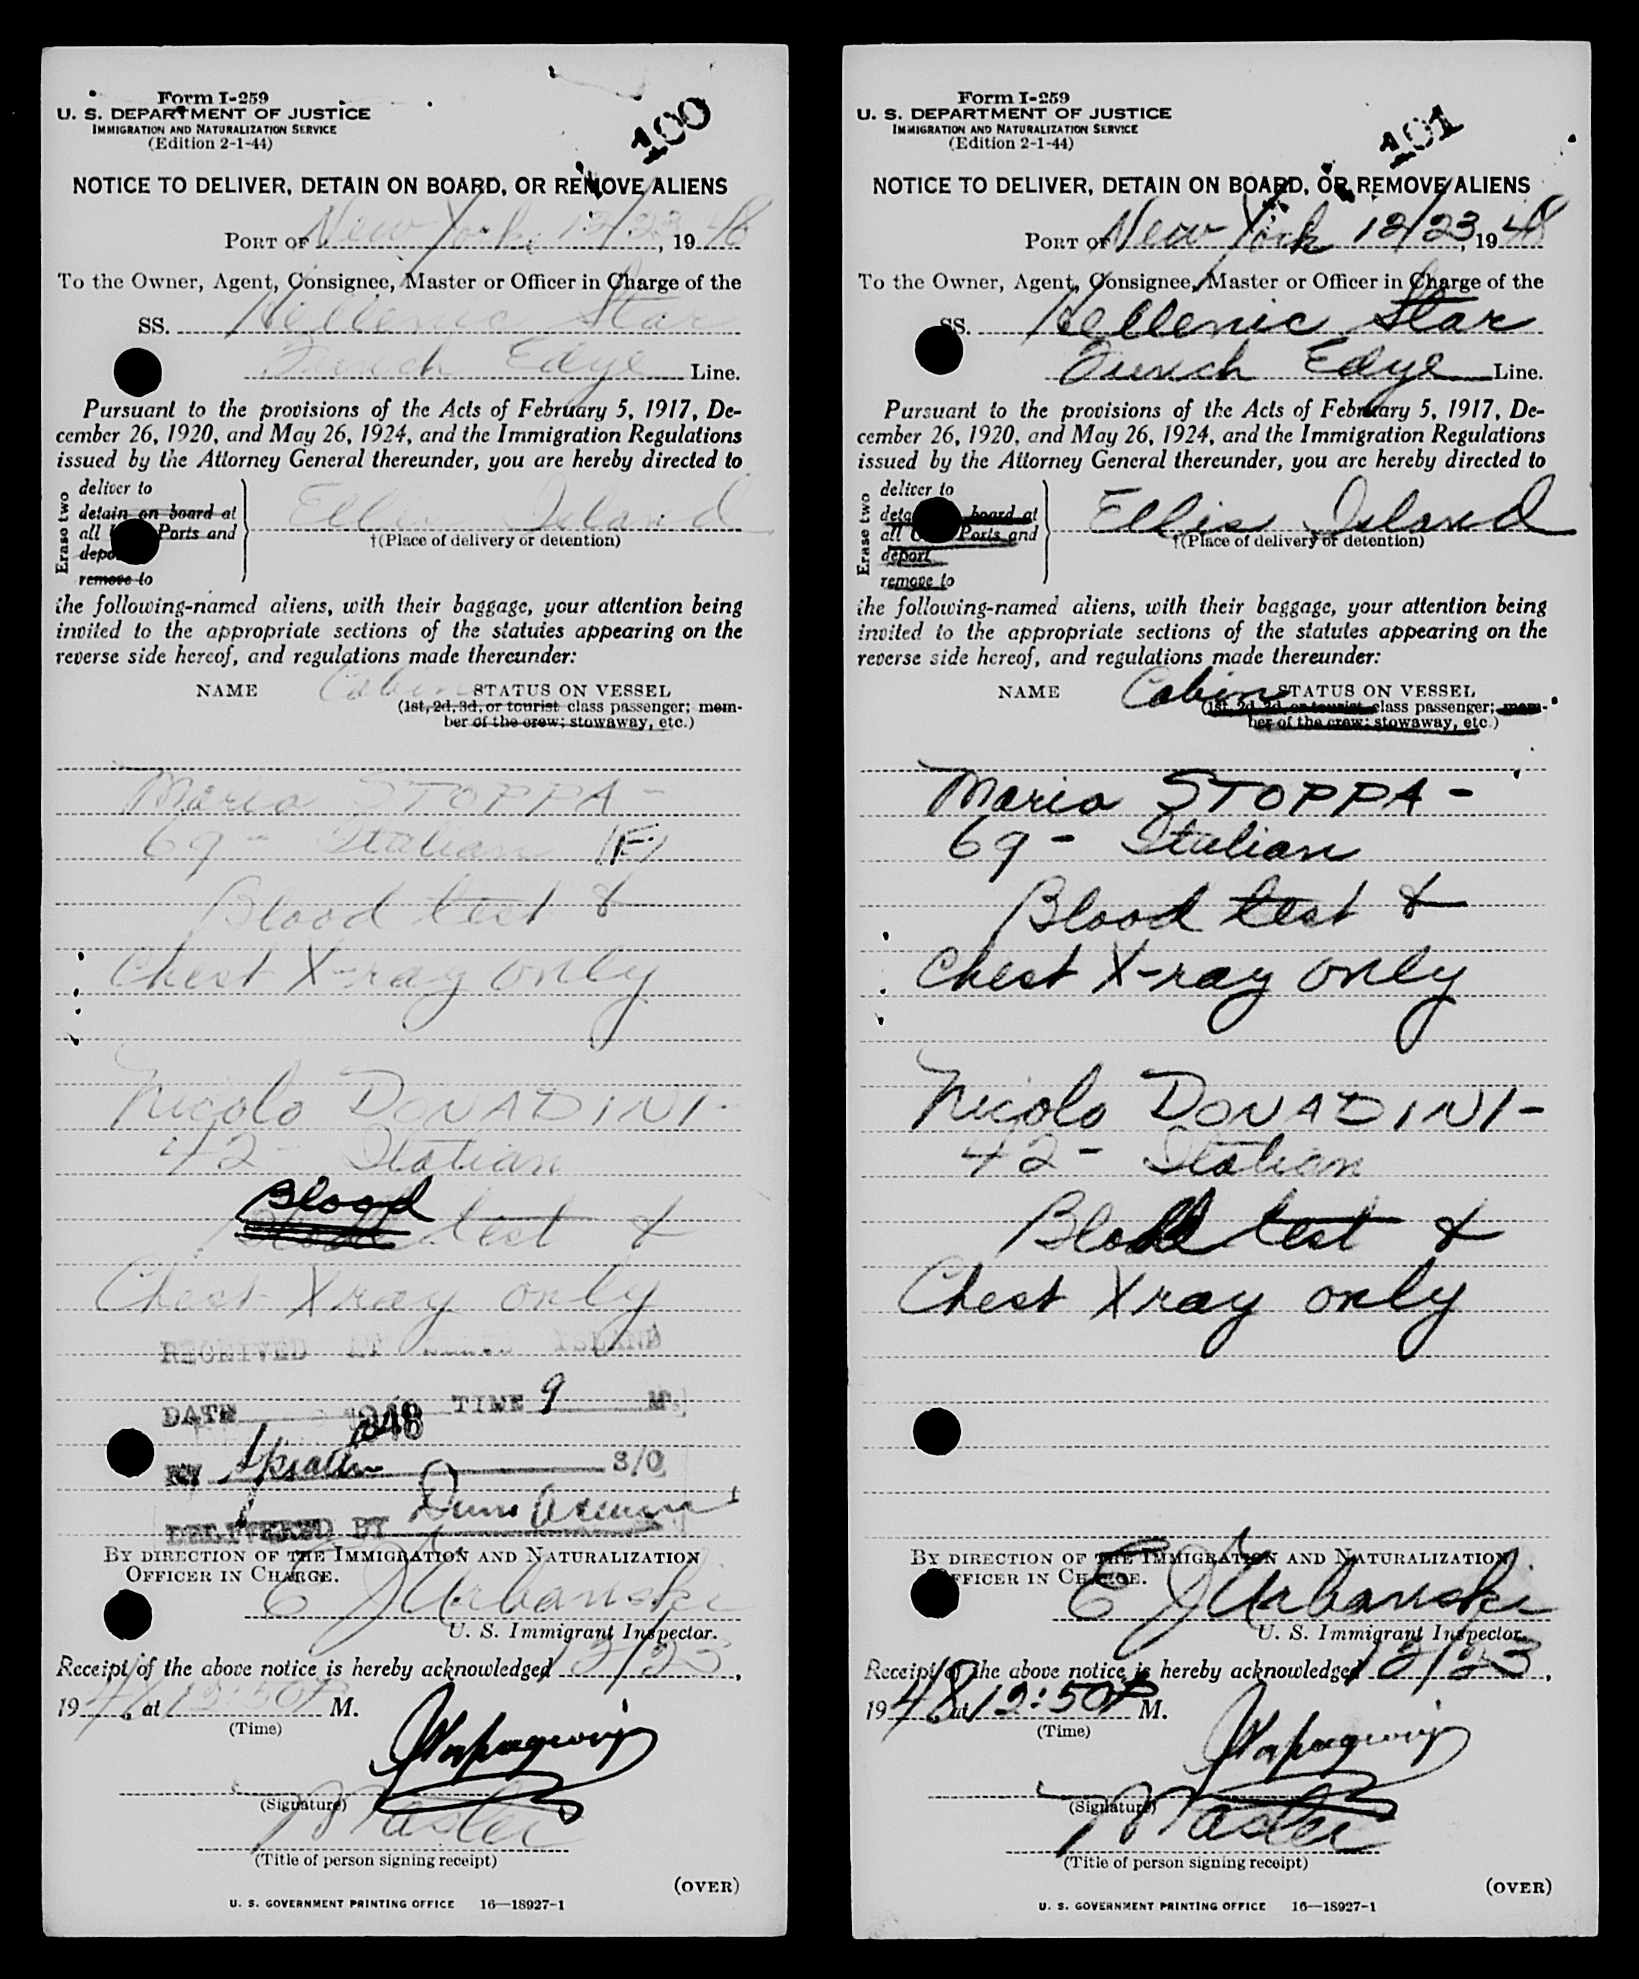 100
Form I-259
U. S. DEPARTMENT OF JUSTICE
IMMIGRATION AND NATURALIZATION SERVICE
(Edition 2-1-44)
NOTICE TO DELIVER, DETAIN ON BOARD, OR REMOVE ALIENS
PORT OF New York 12/23, 1948
To the Owner, Agent, Consignee, Master or Officer in Charge of the
SS. Hellenic Star
Funch Edye Line.
Pursuant to the provisions of the Acts of February 5, 1917, De-
cember 26, 1920, and May 26, 1924, and the Immigration Regulations
issued by the Attorney General thereunder, you are hereby directed to
Erase two
deliver to
detain on board at
all Ports and
remove to
Ellis Island
†(Place of delivery or detention)
the following-named aliens, with their baggage, your attention being
invited to the appropriate sections of the statutes appearing on the
reverse side hereof, and regulations made thereunder:
NAME Cabin STATUS ON VESSEL
(1st, 2d, 3d, or tourist class passenger; mem-
ber of the crew; stowaway, etc.)
Maria STOPPA -
69 - Italian (F)
Blood test &
Chest X-ray only
Nicolo DONADINI -
42 - Italian
Blood test &
Chest Xray only
RECEIVED AT ISLAND
DATE 1948 TIME 9 M.
BY S/O
DELIVERED BY
BY DIRECTION OF THE IMMIGRATION AND NATURALIZATION
OFFICER IN CHARGE.
E J Urbanski
U. S. Immigrant Inspector.
Receipt of the above notice is hereby acknowledged 12/23,
1948, at 12:50 P M.
(Time)
(Signature)
Master
(Title of person signing receipt)
(OVER)
U. S. GOVERNMENT PRINTING OFFICE 16—18927-1
101
Form I-259
U. S. DEPARTMENT OF JUSTICE
IMMIGRATION AND NATURALIZATION SERVICE
(Edition 2-1-44)
NOTICE TO DELIVER, DETAIN ON BOARD, OR REMOVE ALIENS
PORT OF New York 12/23, 1948
To the Owner, Agent, Consignee, Master or Officer in Charge of the
SS. Hellenic Star
Funch Edye Line.
Pursuant to the provisions of the Acts of February 5, 1917, De-
cember 26, 1920, and May 26, 1924, and the Immigration Regulations
issued by the Attorney General thereunder, you are hereby directed to
Erase two
deliver to
board at
all Ports and
deport
remove to
Ellis Island
†(Place of delivery or detention)
the following-named aliens, with their baggage, your attention being
invited to the appropriate sections of the statutes appearing on the
reverse side hereof, and regulations made thereunder:
NAME Cabin STATUS ON VESSEL
(1st, 2d, 3d, or tourist class passenger; mem-
ber of the crew; stowaway, etc.)
Maria STOPPA -
69 - Italian
Blood test &
Chest X-ray only
Nicolo DONADINI -
42 - Italian
Blood test &
Chest Xray only
BY DIRECTION OF THE IMMIGRATION AND NATURALIZATION
OFFICER IN CHARGE.
E J Urbanski
U. S. Immigrant Inspector.
Receipt of the above notice is hereby acknowledged 12/23,
1948, at 12:50 P M.
(Time)
(Signature)
Master
(Title of person signing receipt)
(OVER)
U. S. GOVERNMENT PRINTING OFFICE 16—18927-1